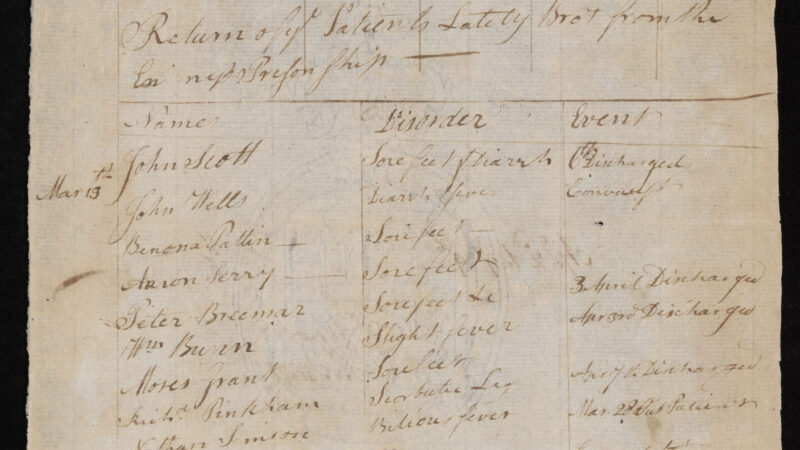 Return of ye Patients Lately Brot from the
Enimys Prison Ship
Names Disorder Event
Mar 13th John Scott Sore feet & Diarrh Discharged
John Wells Diarrh feve Convalst
Benona Pattin Sore feet
Aaron Perry Sore feet 3 April Discharged
Peter Breemar Sore feet &c Apr 3rd Discharged
Wm Bunn Slight fever
Moses Grant Sore feet Apr 7th Discharged
Richd Pinkham Scorbutic Leg Mar 28 Out Patient
Ethan Simson Bilious fever